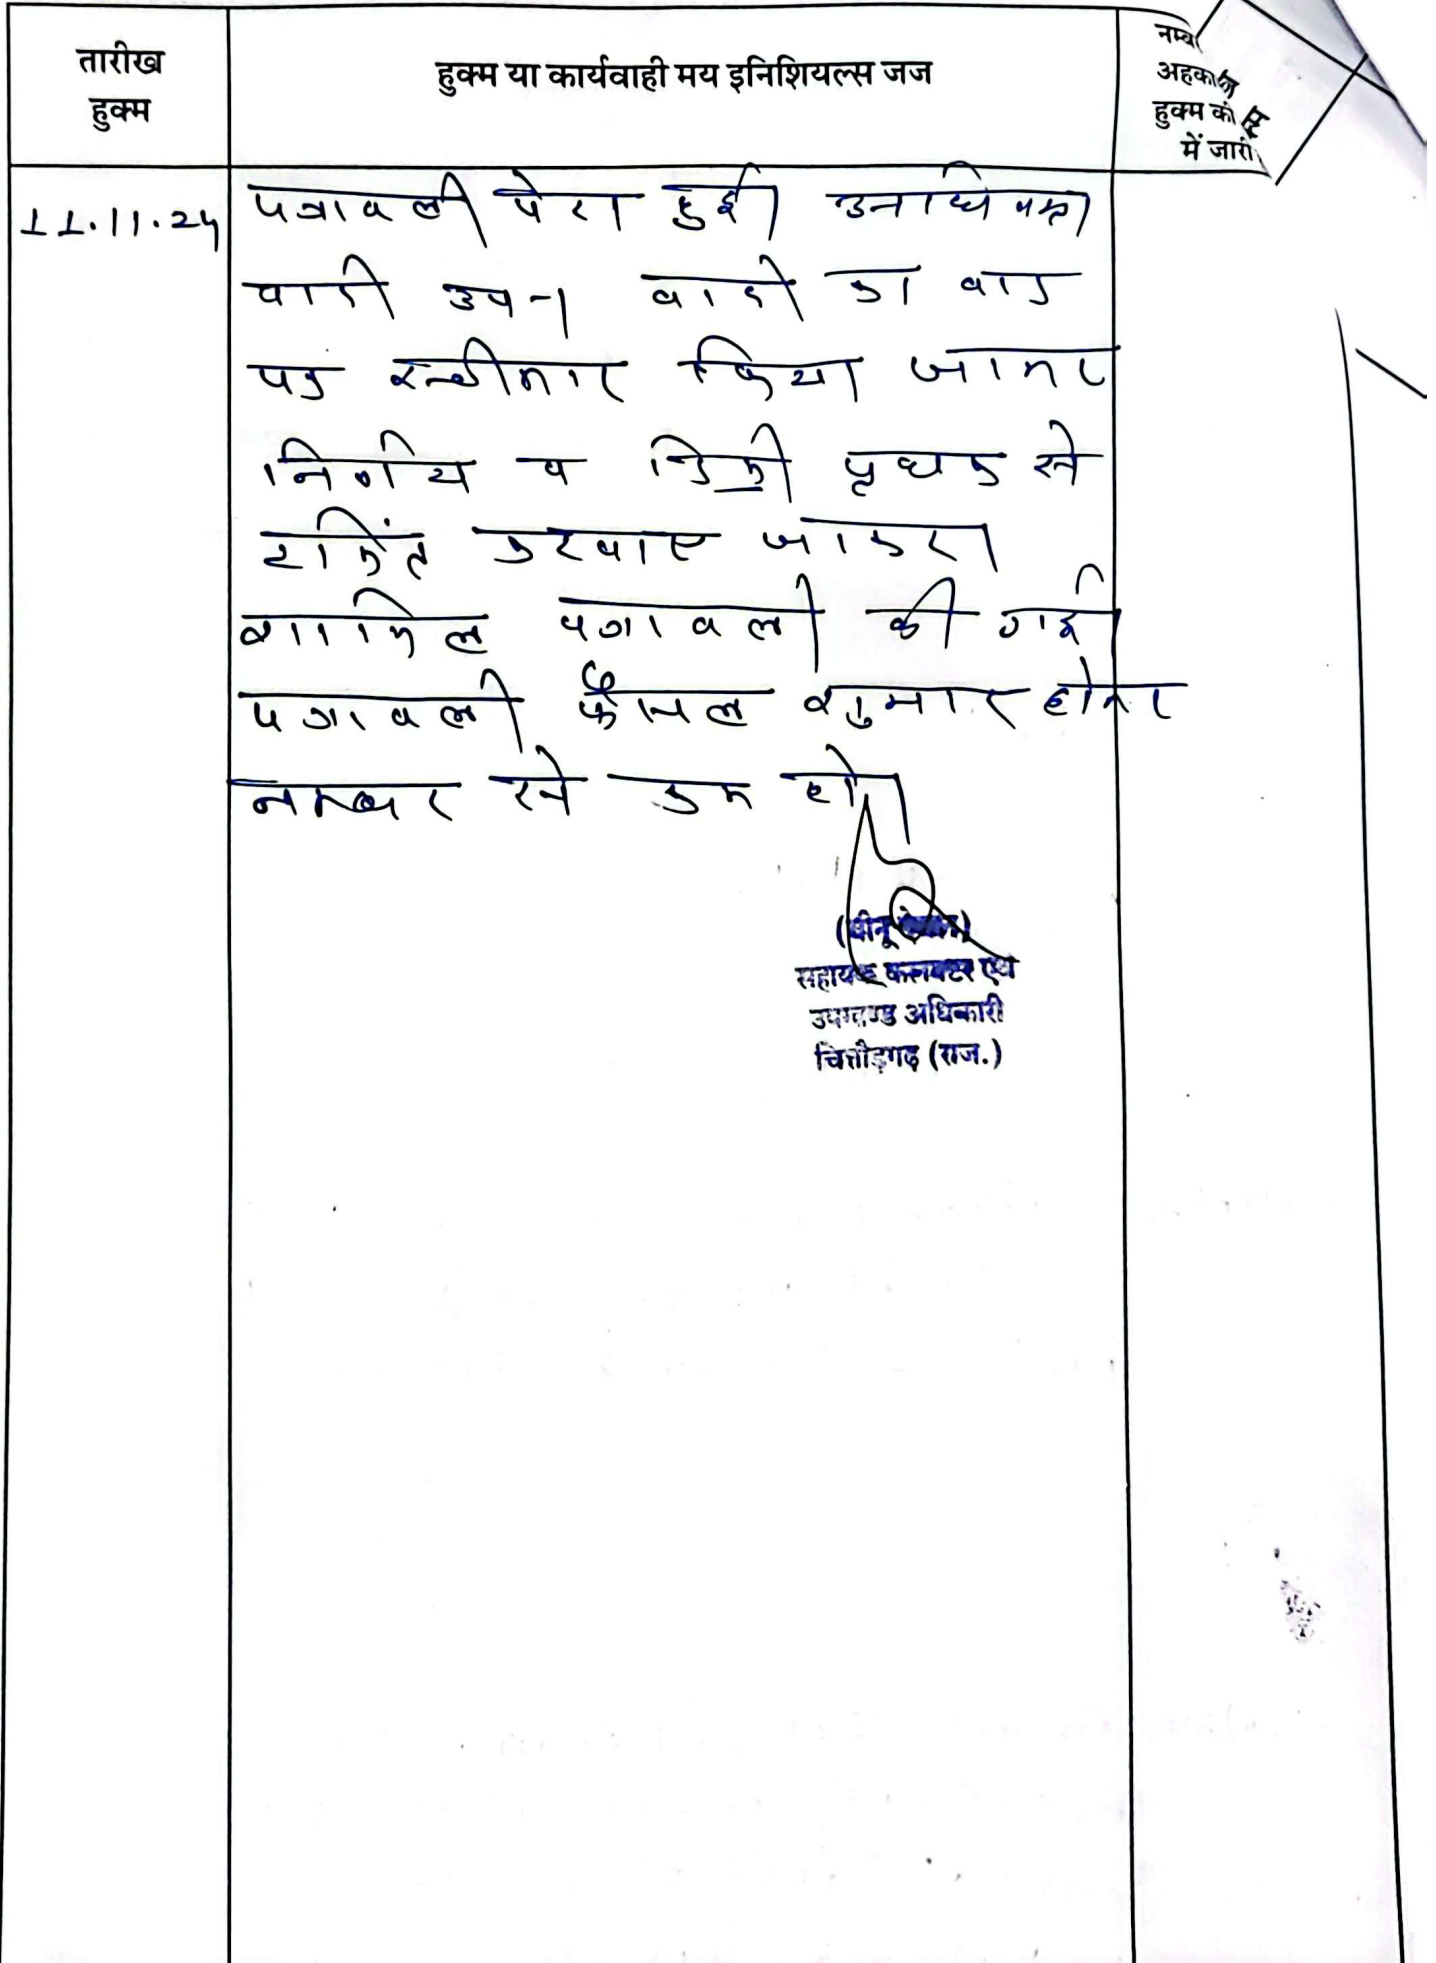 तारीख
हुक्म
हुक्म या कार्यवाही मय इनिशियल्स जज
नम्ब
अहका
हुक्म की
में जारी
11.11.24
पत्रावली पेश हुई।
वादी उप-। वादी का वाद
पत्र स्वीकार किया जाकर
निर्णय व डिक्री पृथक से
करवाए जाकर।
शामिल पत्रावली की गई।
पत्रावली फैसल शुमार होकर
नम्बर से कम हो।
सहायक कलक्टर एवं
उपखण्ड अधिकारी
चित्तौड़गढ़ (राज.)